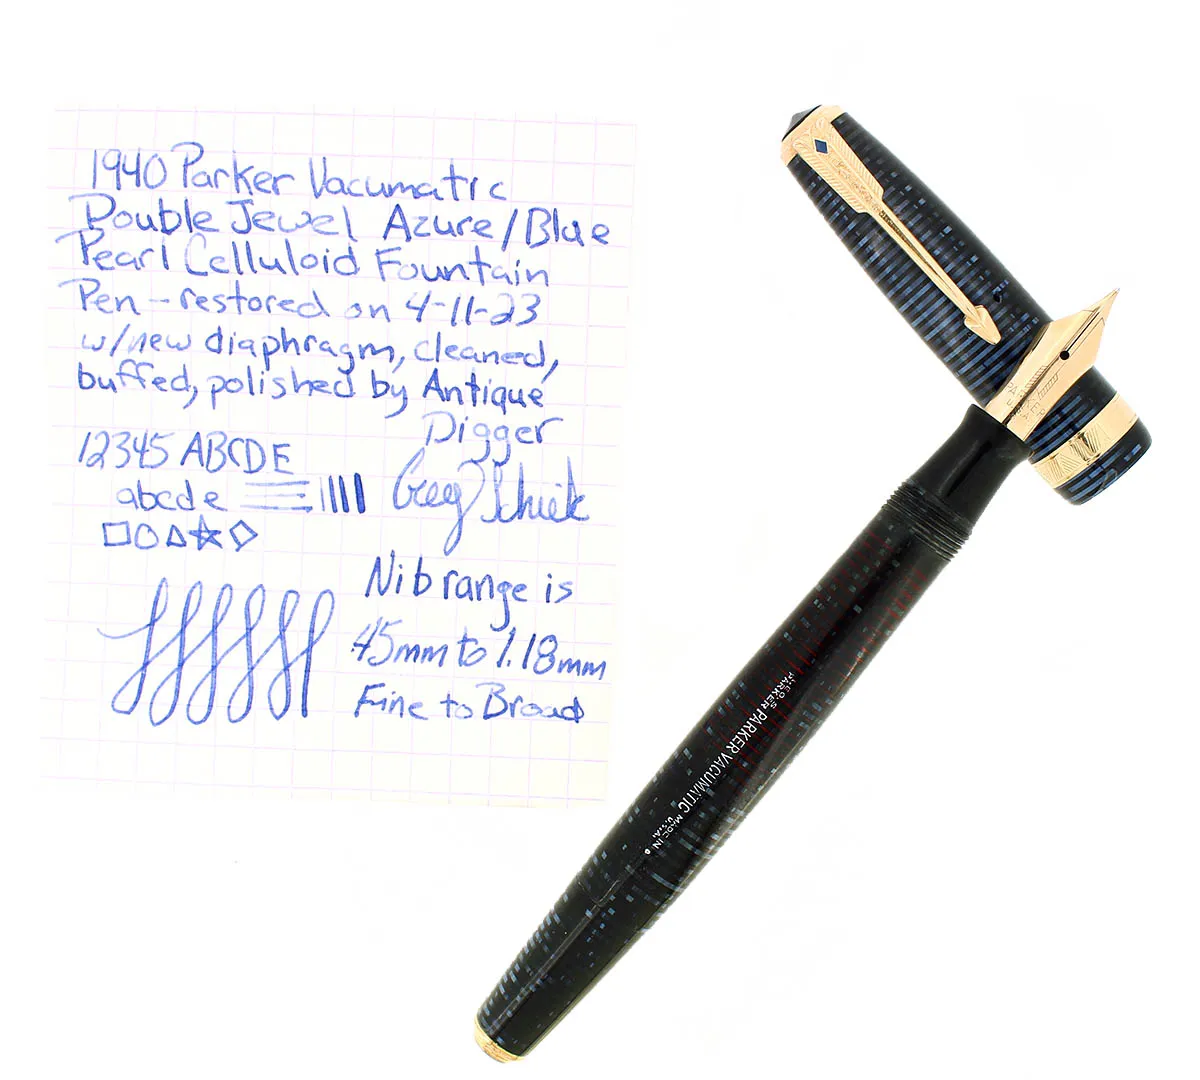 1940 Parker Vacumatic
Double Jewel Azure/Blue
Pearl Celluloid Fountain
Pen - restored on 4-11-23
w/new diaphragm, cleaned,
buffed, polished by Antique
Digger
12345 ABCDE
abcde
Greg Schiek
Nib range is
.45mm to 1.18mm
Fine to Broad
PARKER
PARKER VACUMATIC
MADE IN
U.S.A.